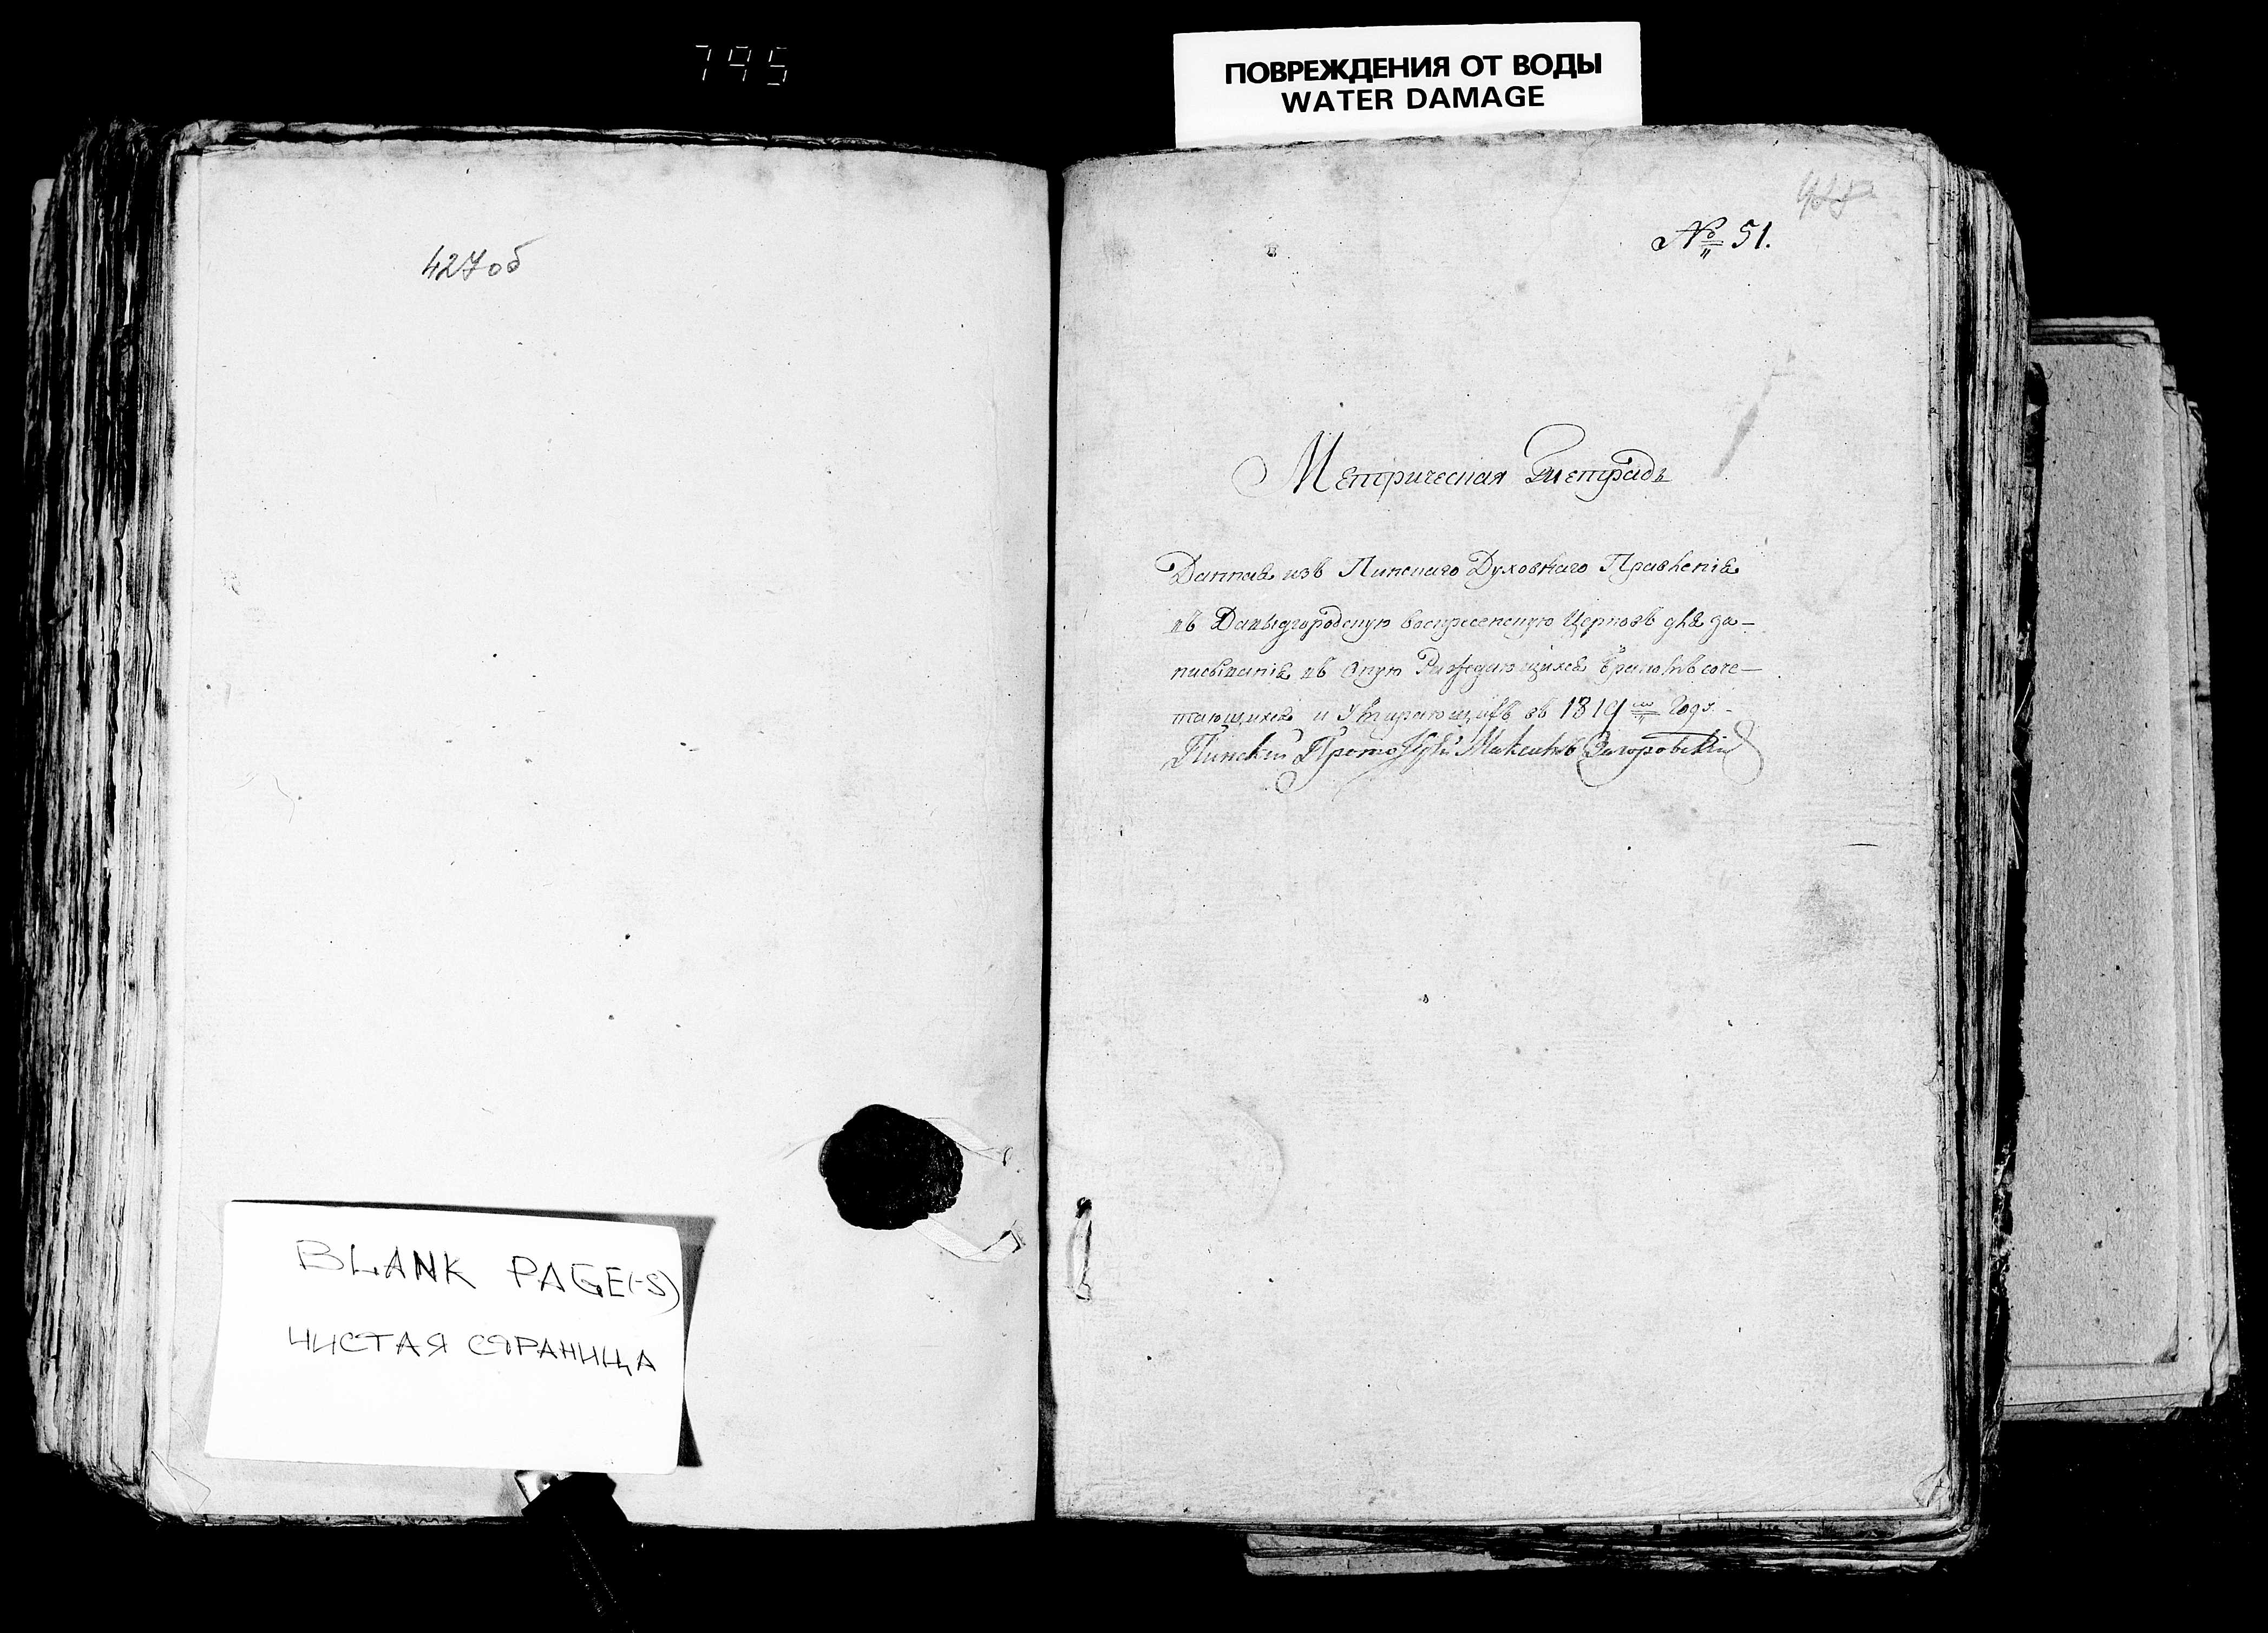 795
ПОВРЕЖДЕНИЯ ОТ ВОДЫ
WATER DAMAGE
427об
428
№ 51.
Метрическая Тетрадь
Данная изъ Пинскаго Духовнаго Правленія
въ Давыдгородскую воскресенскую Церковь для за-
писыванія въ оную Раждающихся бракомъ соче-
тающихся и Умирающихъ въ 1819 м Году.
Пинский Максимъ Загоровский
BLANK PAGE(-S)
ЧИСТАЯ СТРАНИЦА